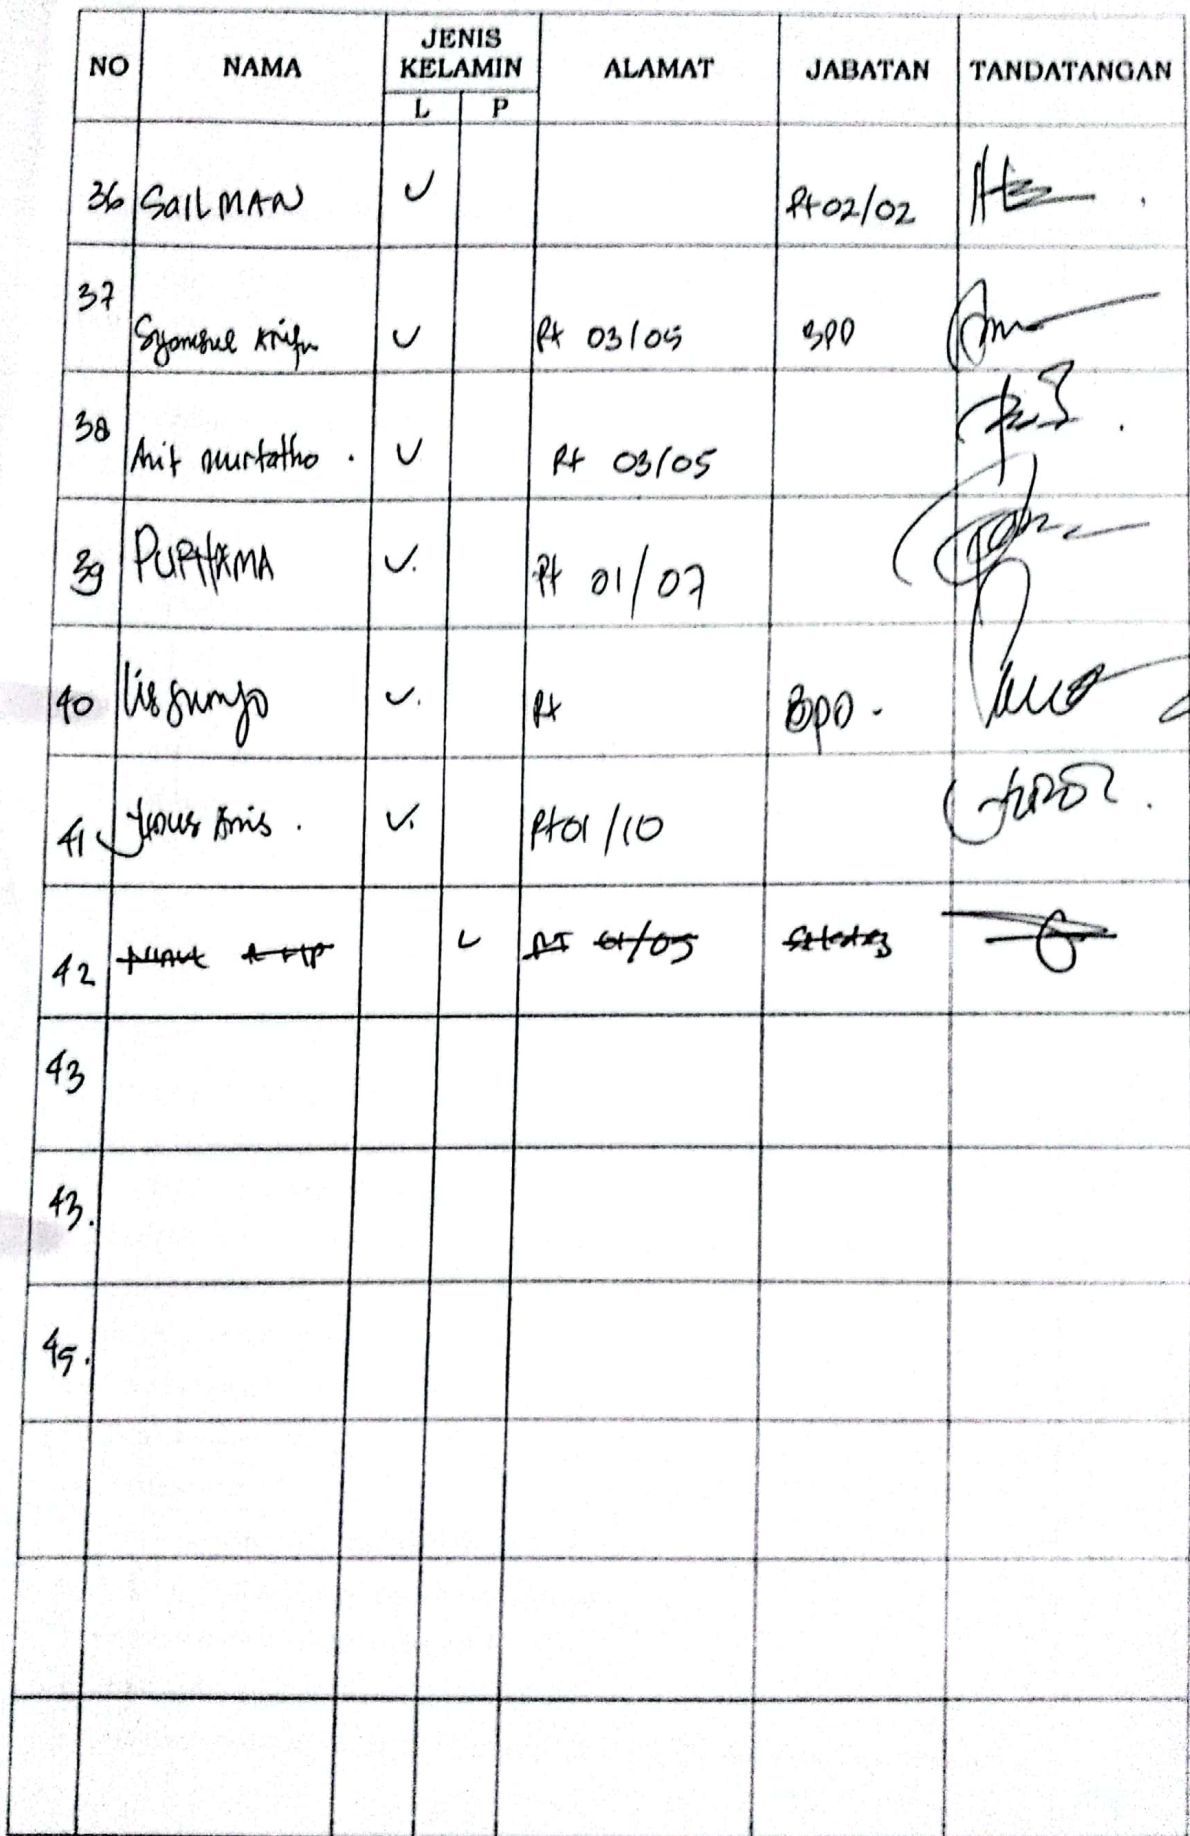 NO NAMA JENIS KELAMIN ALAMAT JABATAN TANDATANGAN
L P
36 SAILMAN Rt 02/02
37 Syamsul Arifn Rt 03/05 BPD
38 Arif murtatho . Rt 03/05
39 Rt 01/07
40 Rt BPD .
41 Yunus Anis . Rt 01/10
42 RT 01/05
43
43.
45.